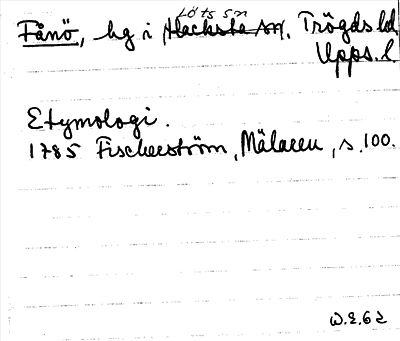 Löts sn
Fånö, hg i Hacksta sn. Trögds hd.
Upps. l
Etymologi.
1785 Fischerström, Mälaren, s. 100.
W.E. 62